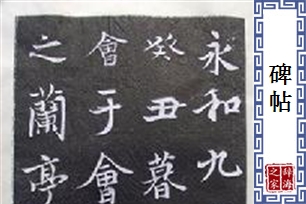 碑帖
辞海
之家
永和九
癸丑暮
會于會
之蘭亭